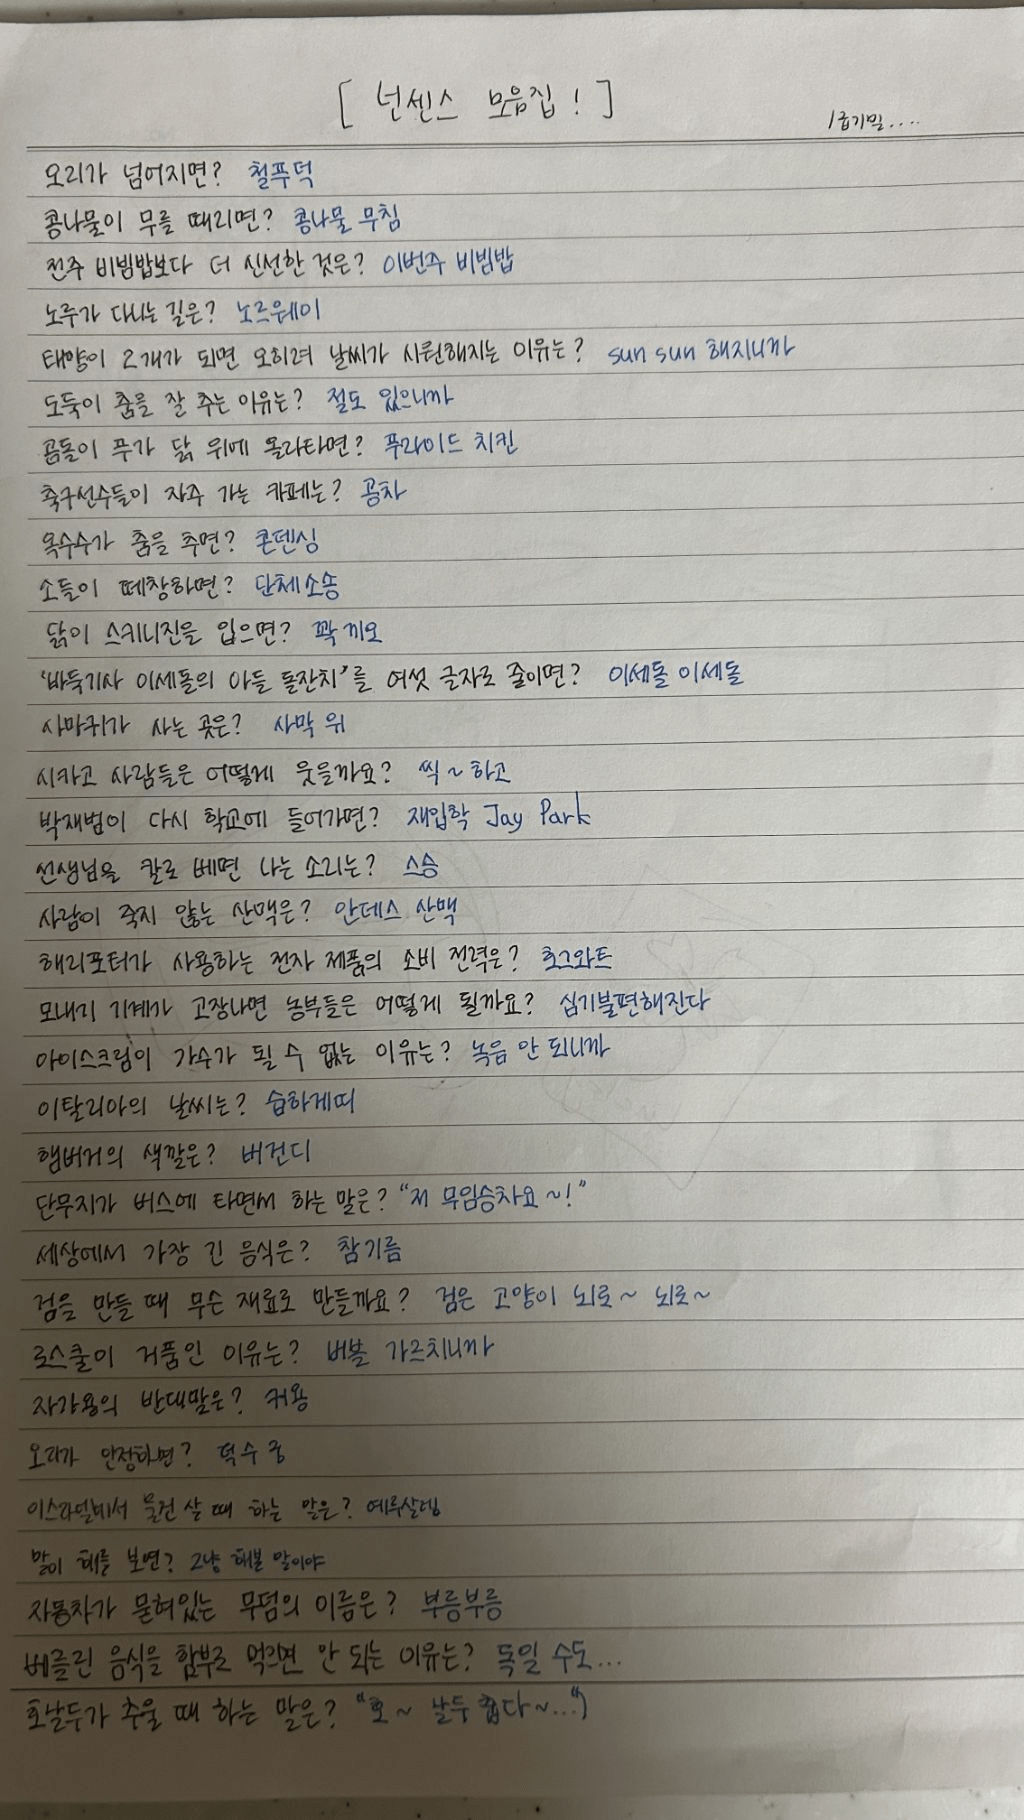 [ 넌센스 모음집 ! ]
1급기밀....
오리가 넘어지면? 철푸덕
콩나물이 무를 때리면? 콩나물 무침
전주 비빔밥보다 더 신선한 것은? 이번주 비빔밥
노루가 다니는 길은? 노르웨이
태양이 2개가 되면 오히려 날씨가 시원해지는 이유는? sun sun 해지니까
도둑이 춤을 잘 추는 이유는? 절도 있으니까
곰돌이 푸가 닭 위에 올라타면? 푸라이드 치킨
축구선수들이 자주 가는 카페는? 공차
옥수수가 춤을 추면? 콘덴싱
소들이 떼창하면? 단체소송
닭이 스키니진을 입으면? 꽉끼오
'바둑기사 이세돌의 아들 돌잔치'를 여섯 글자로 줄이면? 이세돌 이세돌
사마귀가 사는 곳은? 사막 위
시카고 사람들은 어떻게 웃을까요? 씩~하고
박재범이 다시 학교에 들어가면? 재입학 Jay Park
선생님을 칼로 베면 나는 소리는? 스승
사람이 죽지 않는 산맥은? 안데스 산맥
해리포터가 사용하는 전자 제품의 소비 전력은? 호그와트
모내기 기계가 고장나면 농부들은 어떻게 될까요? 심기불편해진다
아이스크림이 가수가 될 수 없는 이유는? 녹음 안 되니까
이탈리아의 날씨는? 습하게띠
햄버거의 색깔은? 버건디
단무지가 버스에 타면서 하는 말은? "저 무임승차요~!"
세상에서 가장 긴 음식은? 참기름
검을 만들 때 무슨 재료로 만들까요? 검은 고양이 뇌로~ 뇌로~
로스쿨이 거품인 이유는? 버블 가르치니까
자가용의 반대말은? 커용
오리가 안정하면? 덕수궁
이스라엘에서 물건 살 때 하는 말은? 예루살렘
말이 해를 보면? 그냥 해본 말이야
자동차가 묻혀있는 무덤의 이름은? 부릉부릉
베를린 음식을 함부로 먹으면 안 되는 이유는? 독일 수도...
호날두가 추울 때 하는 말은? "호~ 날두 춥다~..."